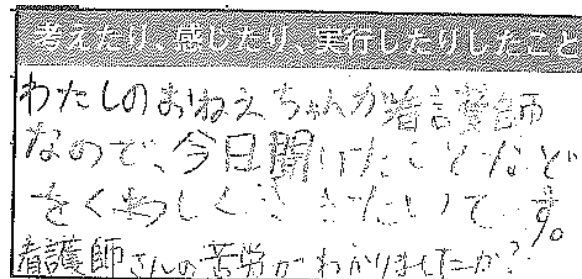 考えたり、感じたり、実行したりしたこと
わたしのおねえちゃんが看護師
なので、今日聞けたことなど
をくわしくききたいです。
看護師さんの苦労がわかりましたか?